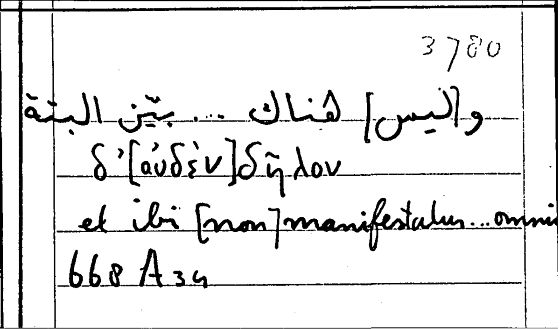 3780
و[ليس] هناك ... بيّن البتة
δ’[οὐδὲν]δῆλον
et ibi [non]manifestatur...omni
668 A 34